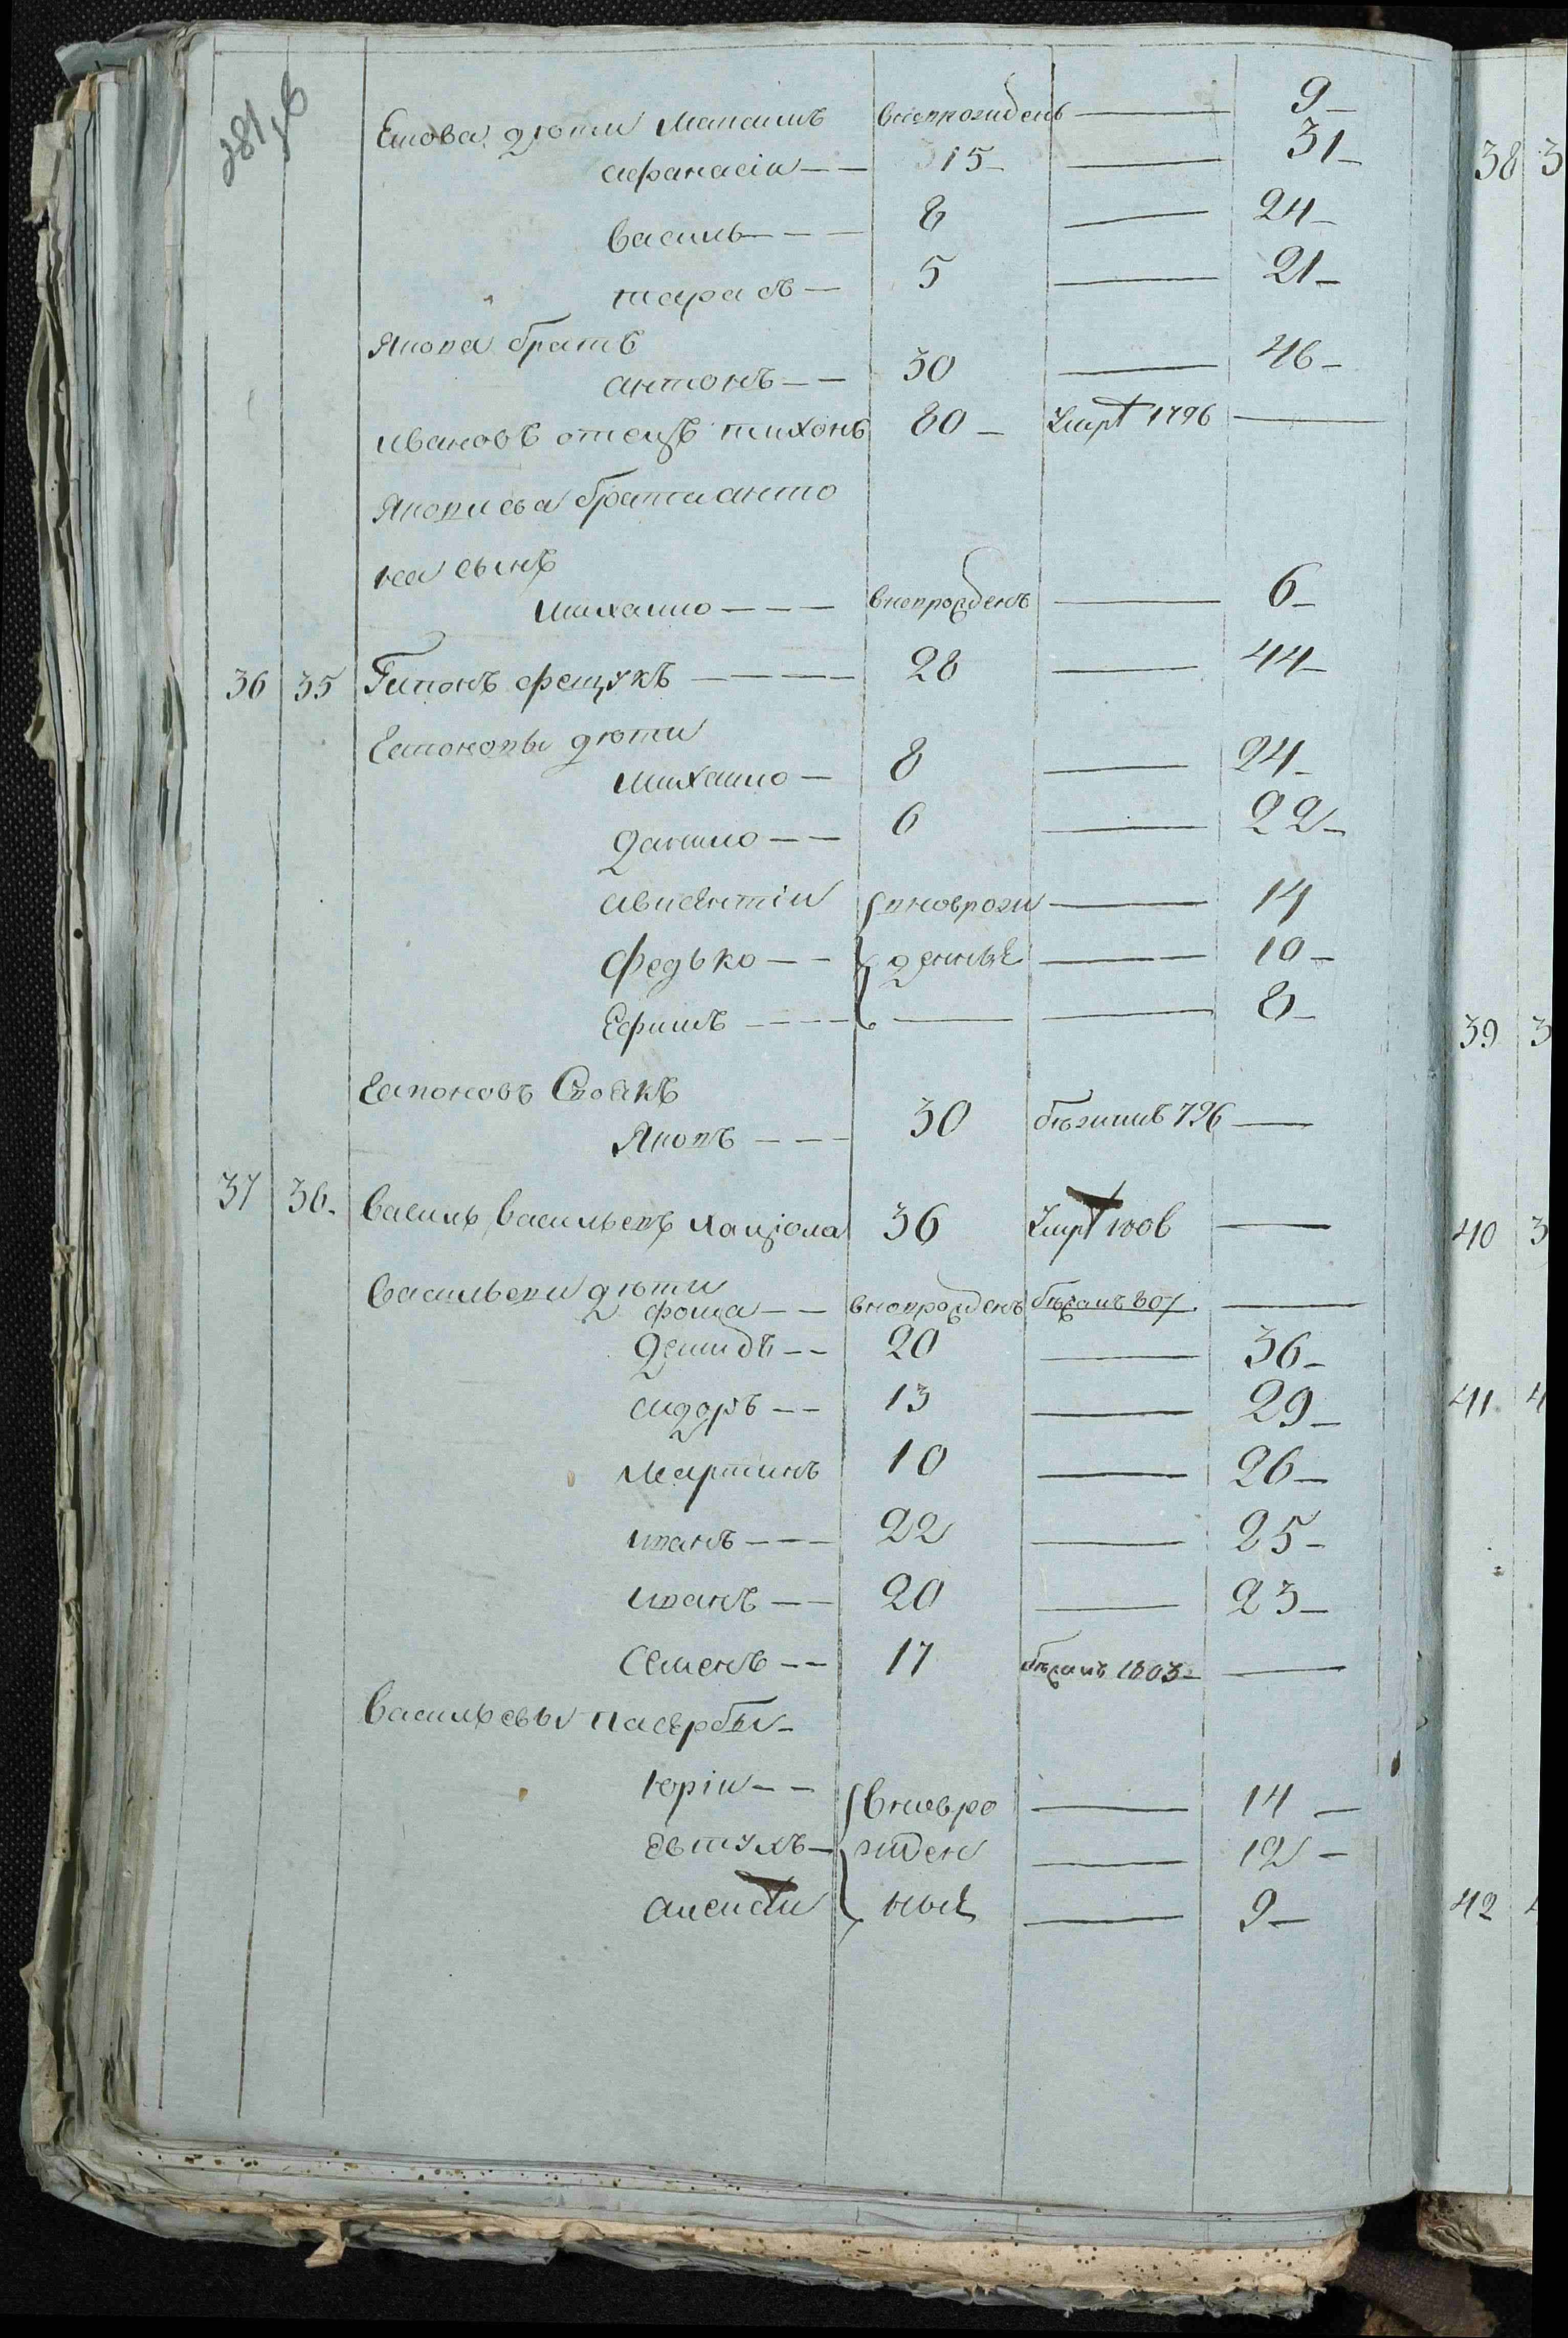 Якова дѣти Максимъ вновророжденъ — 9 —
афанасіи — — 15 — — 31 —
василь — — — 8 — 24 —
тарасъ — 5 — 21 —
Якова братъ
антонъ — — 30 — 46 —
ивановъ отецъ тихонъ 80 — умрѣ 1796 —
Якова брата анто
на сынъ
михаило — — — вноврожденъ — 6 —
36 35 Гапонъ фещукъ — — — — 28 — 44 —
Гапоновы дѣти
михаило — 8 — 24 —
данило — — 6 — 22 —
авксентіи вноврож — 14
федько — — денные — 10 —
Ефимъ — — — — — 8 —
Гапоновъ Своякъ
Яковъ — — — 30 бѣжилъ 796 —
37 36. василь васильевъ 36 умрѣ 1806 —
васильевы дѣти
фома — — вноврожденъ бѣжалъ 807. —
демидъ — — 20 — 36 —
сидоръ — — 13 — 29 —
мартинъ 10 — 26 —
иванъ — — — 22 — 25 —
иванъ — — 20 — 23 —
Семенъ — — 17 бѣжалъ 1803 — —
васильевы пасербы —
юріи — — вновро — 14 —
евтухъ — жден — 12 —
алексѣи ные — 9 —
38 3
39 3
40 3
41 4
42